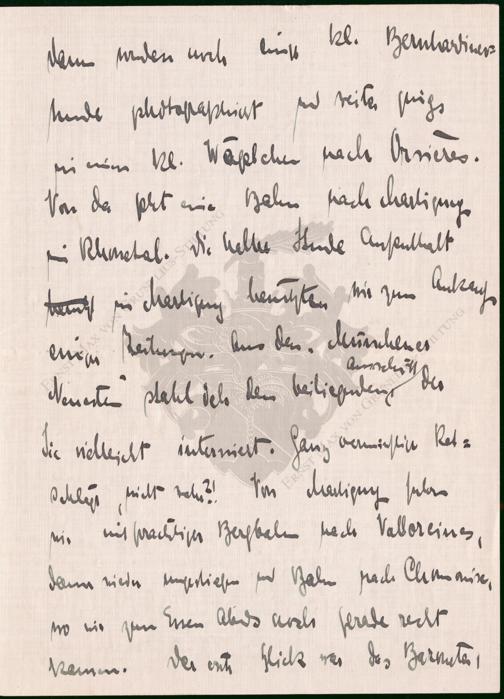 dann wurden noch einige kl. Bernhardiner=
hunde photographiert und weiter gings
in einem kl. Wägelchen nach Orsières.
Von da geht eine Bahn nach Martigny
im Rhonetal. Die halbe Stunde Aufenthalt
in Martigny benützten wir zum Ankauf
einiger Zeitungen. Aus den „Münchener
Neuesten" stahl ich den beiliegenden Ausschnitt der
Sie vielleicht interessiert. Ganz vernünftige Rat=
schläge, nicht wahr?! Von Martigny fuhren
wir mit prächtiger Bergbahn nach Vallorcines,
dann wieder umgestiegen und Bahn nach Chamonix,
wo wir zum Essen Abends noch gerade recht
kamen. Der erste Blick war das Barometer,
ERNST MAX VON GRUNELIUS-STIFTUNG
ERNST MAX VON GRUNELIUS-STIFTUNG